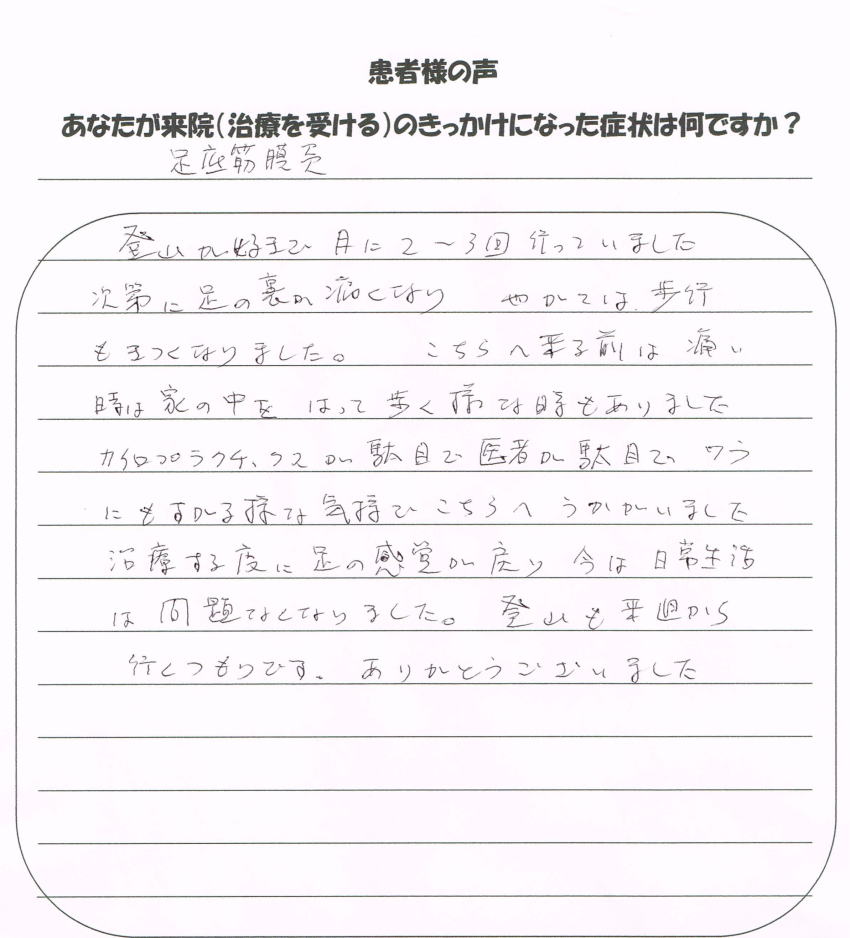 患者様の声
あなたが来院(治療を受ける)のきっかけになった症状は何ですか？
足底筋膜炎
登山が好きで 月に2～3回 行っていました
次第に足の裏が痛くなり やがては 歩行
もきつくなりました。 こちらへ来る前は 痛い
時は家の中を はって歩く様な時もありました
カイロプラクチックスが駄目で医者が駄目で、ワラ
にもすがる様な気持でこちらへ うかがいました
治療する度に足の感覚が戻り 今は日常生活
は問題なくなりました。 登山も来週から
行くつもりです。 ありがとうございました